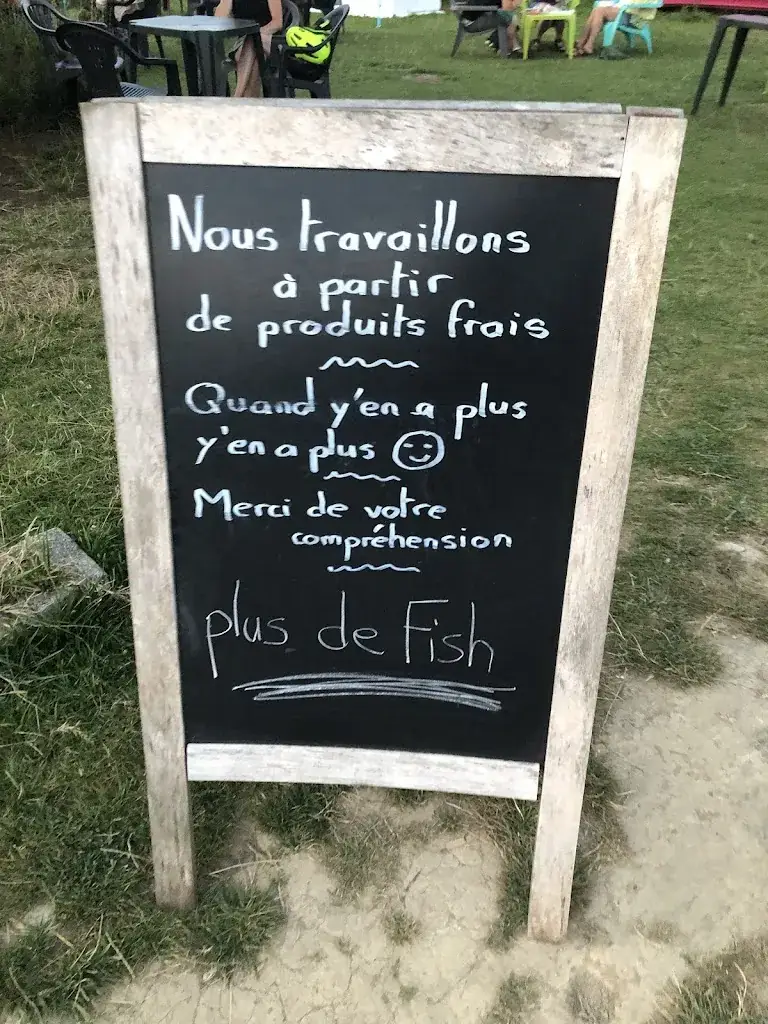 Nous travaillons
à partir
de produits frais
Quand y'en a plus
y'en a plus
Merci de votre
compréhension
plus de Fish